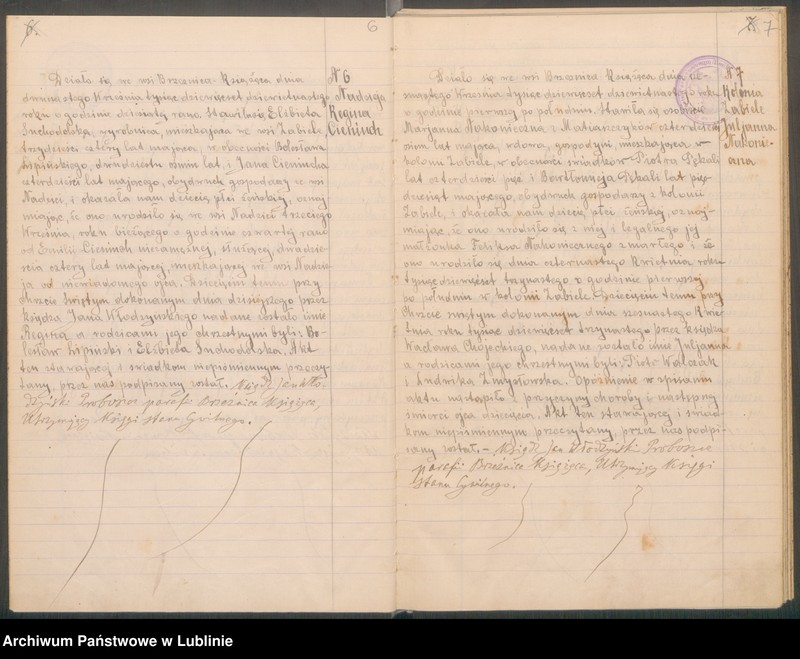 6
N 6
Nadzieja
Regina
Cieniuch
Działo się we wsi Brzeźnica-Książęca dnia
dwunastego Września tysiąc dziewięćset dziewiętnastego
roku o godzinie dziesiątej rano. Stawiła się Elżbieta
Suchodolska, wyrobnica, mieszkająca we wsi Zabiele,
trzydzieści cztery lat mająca, w obecności Bolesława
Lipińskiego, dwudziestu ośmiu lat, i Jana Cieniucha
czterdzieści lat mającego, obydwuch gospodarzy ze wsi
Nadziei, i okazała nam dziecię płci żeńskiej, oznaj
miając, że ono urodziło się we wsi Nadziei trzeciego
Września, roku bieżącego o godzinie czwartej rano
od Emilii Cieniuch niezamężnej, służącej, dwadzie-
ścia cztery lat mającej, mieszkającej we wsi Nadzie
ja od niewiadomego ojca. Dziecięciu temu przy
chrzcie świętym dokonanym dnia dzisiejszego przez
księdza Jana Włodzyńskiego nadane zostało imie
Regina a rodzicami jego chrzestnymi byli: Bo-
lesław Lipiński i Elżbieta Suchodolska. Akt
ten stawającej i świadkom niepiśmiennym przeczy-
tany, przez nas podpisany został. Ksiądz Jan Wło-
dzyński Proboszcz parafii Brzeźnica Książęca,
Utrzymujący Księgi stanu Cywilnego.
7
N 7
Kolonia
Zabiele
Juljanna
Nakonie-
czna
Działo się we wsi Brzeźnica Książęca dnia
Września tysiąc dziewięćset dziewiętnastego roku
o godzinie pierwszej po południu. Stawiła się osobiście
Marjanna Nakonieczna z Matwiejczyków czterdzieści
ośm lat mająca, wdowa, gospodyni, mieszkająca w
kolonii Zabiele, w obecności świadków Piotra Pękali
lat czterdzieści pięć i Bartłomieja Pękali lat pięć-
dziesiąt mającego, obydwuch gospodarzy z kolonii
Zabiele, i okazała nam dziecię płci żeńskiej, oznaj-
miając, że ono urodziło się z niej i legalnego jej
małżonka Feliksa Nakoniecznego zmarłego i że
ono urodziło się dnia czternastego Kwietnia roku
tysiąc dziewięćset trzynastego o godzinie pierwszej
po południu w kolonii Zabiele. Dziecięciu temu przy
Chrzcie świętym dokonanym dnia szesnastego Kwie-
tnia roku tysiąc dziewięćset trzynastego przez księdza
Wacława Chojeckiego, nadane zostało imie Juljanna
a rodzicami jego chrzestnymi byli: Piotr Walczak
i Ludwika Zmysłowska. Opóźnienie w spisaniu
aktu nastąpiło z przyczyny choroby i następnej
śmierci ojca dziecięcia. Akt ten stawającej i świad-
kom niepiśmiennym przeczytany, przez nas podpi-
sany został. - Ksiądz Jan Włodzyński Proboszcz
parafii Brzeźnica Książęca, Utrzymujący Księgi
stanu Cywilnego.
Archiwum Państwowe w Lublinie